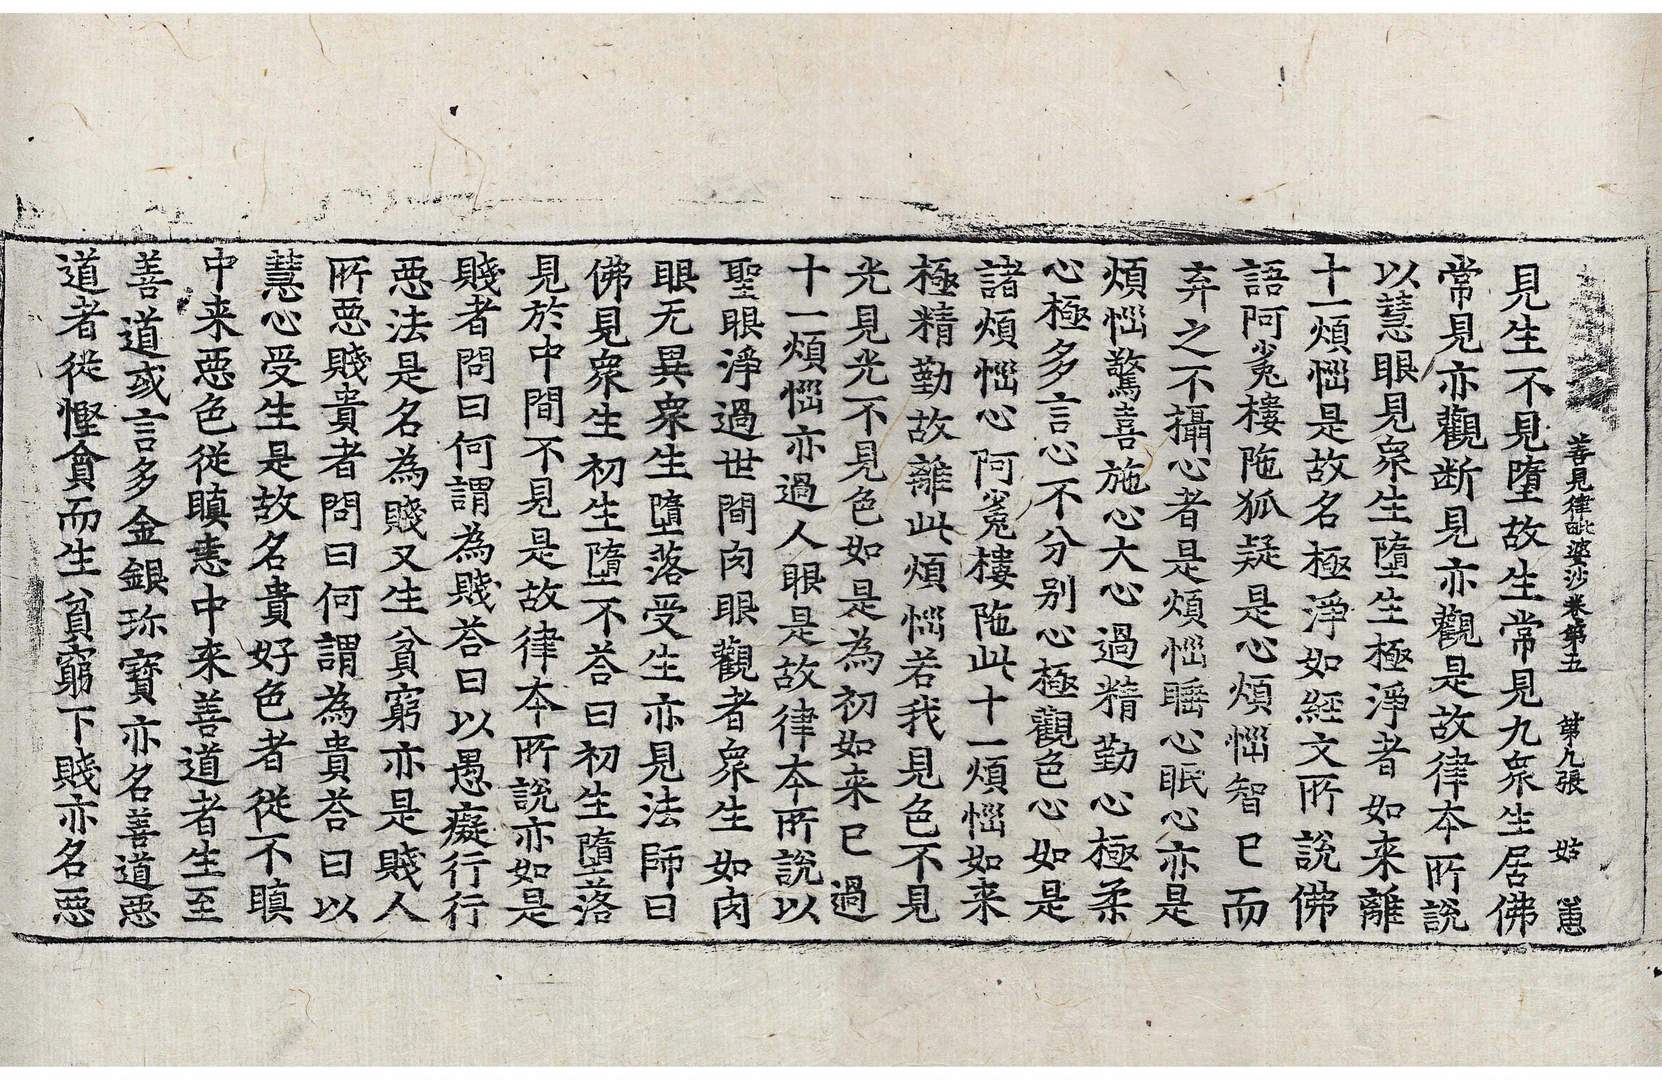 善見律毗婆沙卷第五　第九張　姑
見生不見墮故生常見九衆生居佛
常見亦觀断見亦觀是故律本所說
以慧眼見衆生墮生極淨者如来離
十一煩惱是故名極淨如經文所說佛
語阿㝹樓陁狐疑是心煩惱智已而
弃之不攝心者是煩惱睡心眠心亦是
煩惱驚喜施心大心過精勤心極柔
心極多言心不分别心極觀色心如是
諸煩惱心阿㝹樓陁此十一煩惱如来
極精勤故離此煩惱若我見色不見
光見光不見色如是為初如来已過
十一煩惱亦過人眼是故律本所說以
聖眼淨過世間肉眼觀者衆生如肉
眼无異衆生墮落受生亦見法師曰
佛見衆生初生墮不荅曰初生墮落
見於中間不見是故律本所說亦如是
賤者問曰何謂為賤荅曰以愚癡行行
惡法是名為賤又生貧窮亦是賤人
所惡賤貴者問曰何謂為貴荅曰以
慧心受生是故名貴好色者從不瞋
中来惡色從瞋恚中来善道者生至
善道或言多金銀珎寶亦名善道惡
道者從慳貪而生貧窮下賤亦名惡